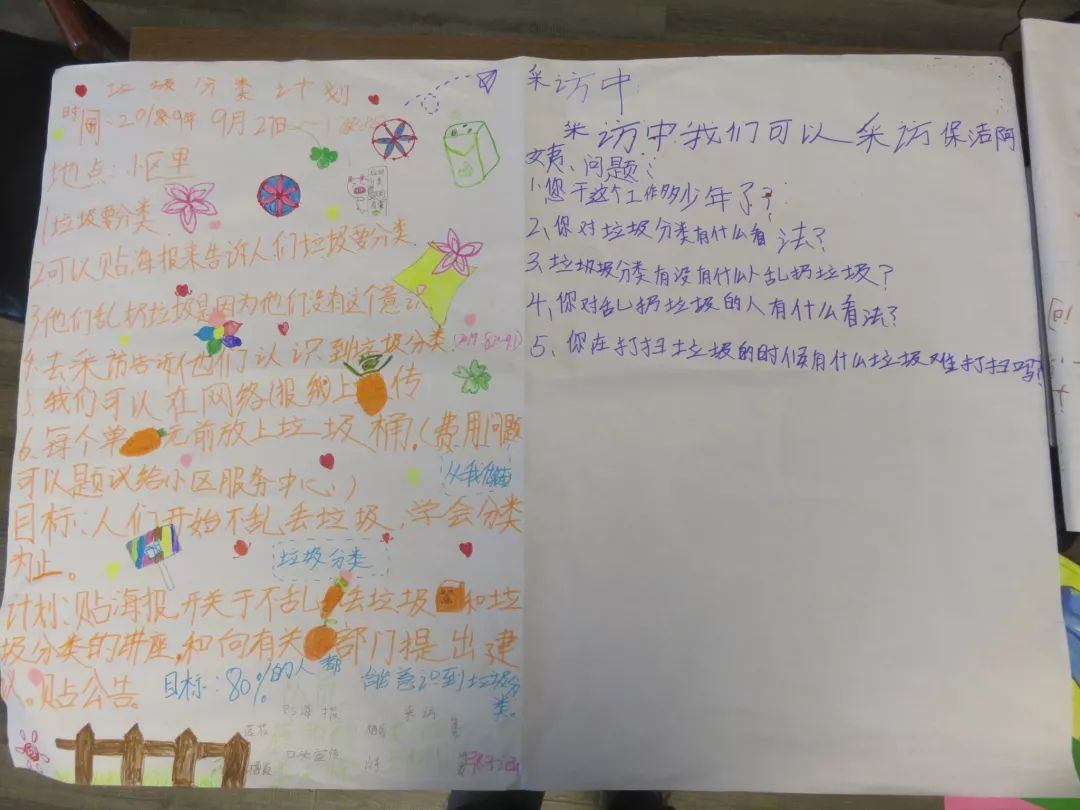 垃圾分类计划
时间:2018.9年 9月27日
地点:小区里
1.垃圾要分类
2.可以贴海报来告诉人们垃圾要分类.
3.他们乱扔垃圾是因为他们没有这个意识
4.去采访告诉他们认识到垃圾分类
5.我们可以在网络(报纸)上传
6.每个单元前放上垃圾桶.(费用问题
可以题议给小区服务中心:)
从我做起
目标:人们开始不乱丢垃圾,学会分类
为止。
垃圾分类
计划:贴海报,开关于不乱丢垃圾和垃
圾分类的讲座,和向有关部门提出建
议。贴公告。
目标:80%的人都能意识到垃圾分
类。
贴海报 采访
口头宣传
采访中
采访中我们可以采访保洁阿
姨、问题:
1.您干这个工作多少年了?
2、你对垃圾分类有什么看法?
3、垃圾圾分类有没有什么乱扔垃圾?
4、你对乱扔垃圾的人有什么看法?
5、你在打扫垃圾的时候有什么垃圾难打扫吗?